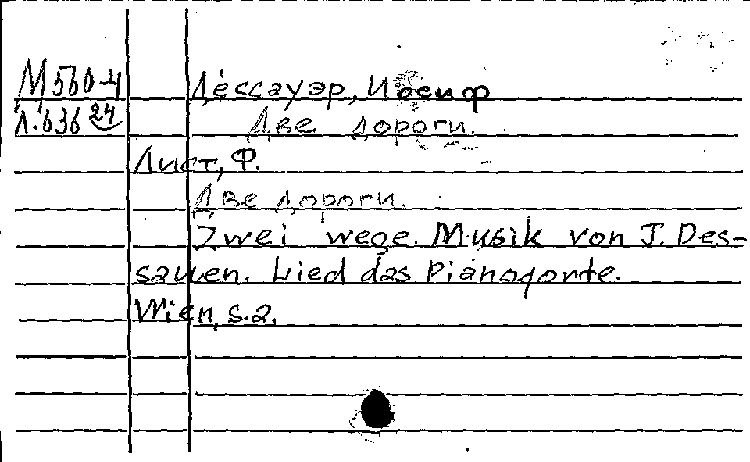 М560-4 Дессауэр, Иосиф
Л.636 24 Две дороги.
Лист, Ф.
Две дороги.
Zwei wege. Musik von J. Des-
sauen. Lied das Pianoqorte.
Wien, s.a.